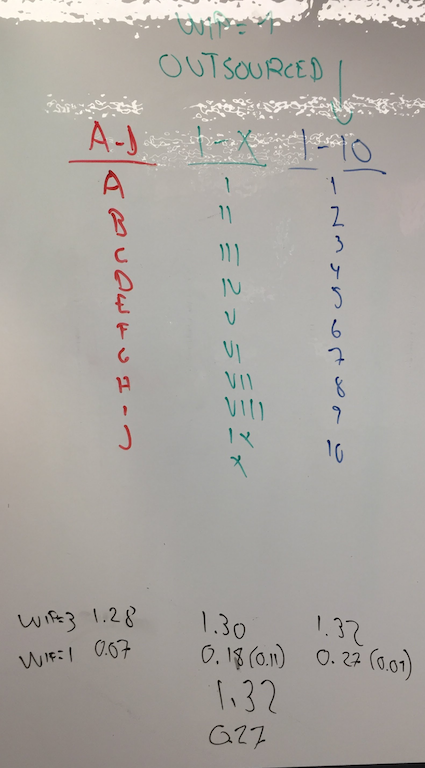 WIP=1
OUTSOURCED
A-J I-X 1-10
A I 1
B II 2
C III 3
D IV 4
E V 5
F VI 6
G VII 7
H VIII 8
I IX 9
J X 10
WIP=3 1.28 1.30 1.32
WIP=1 0.07 0.18 (0.11) 0.27 (0.09)
1.32
0.27